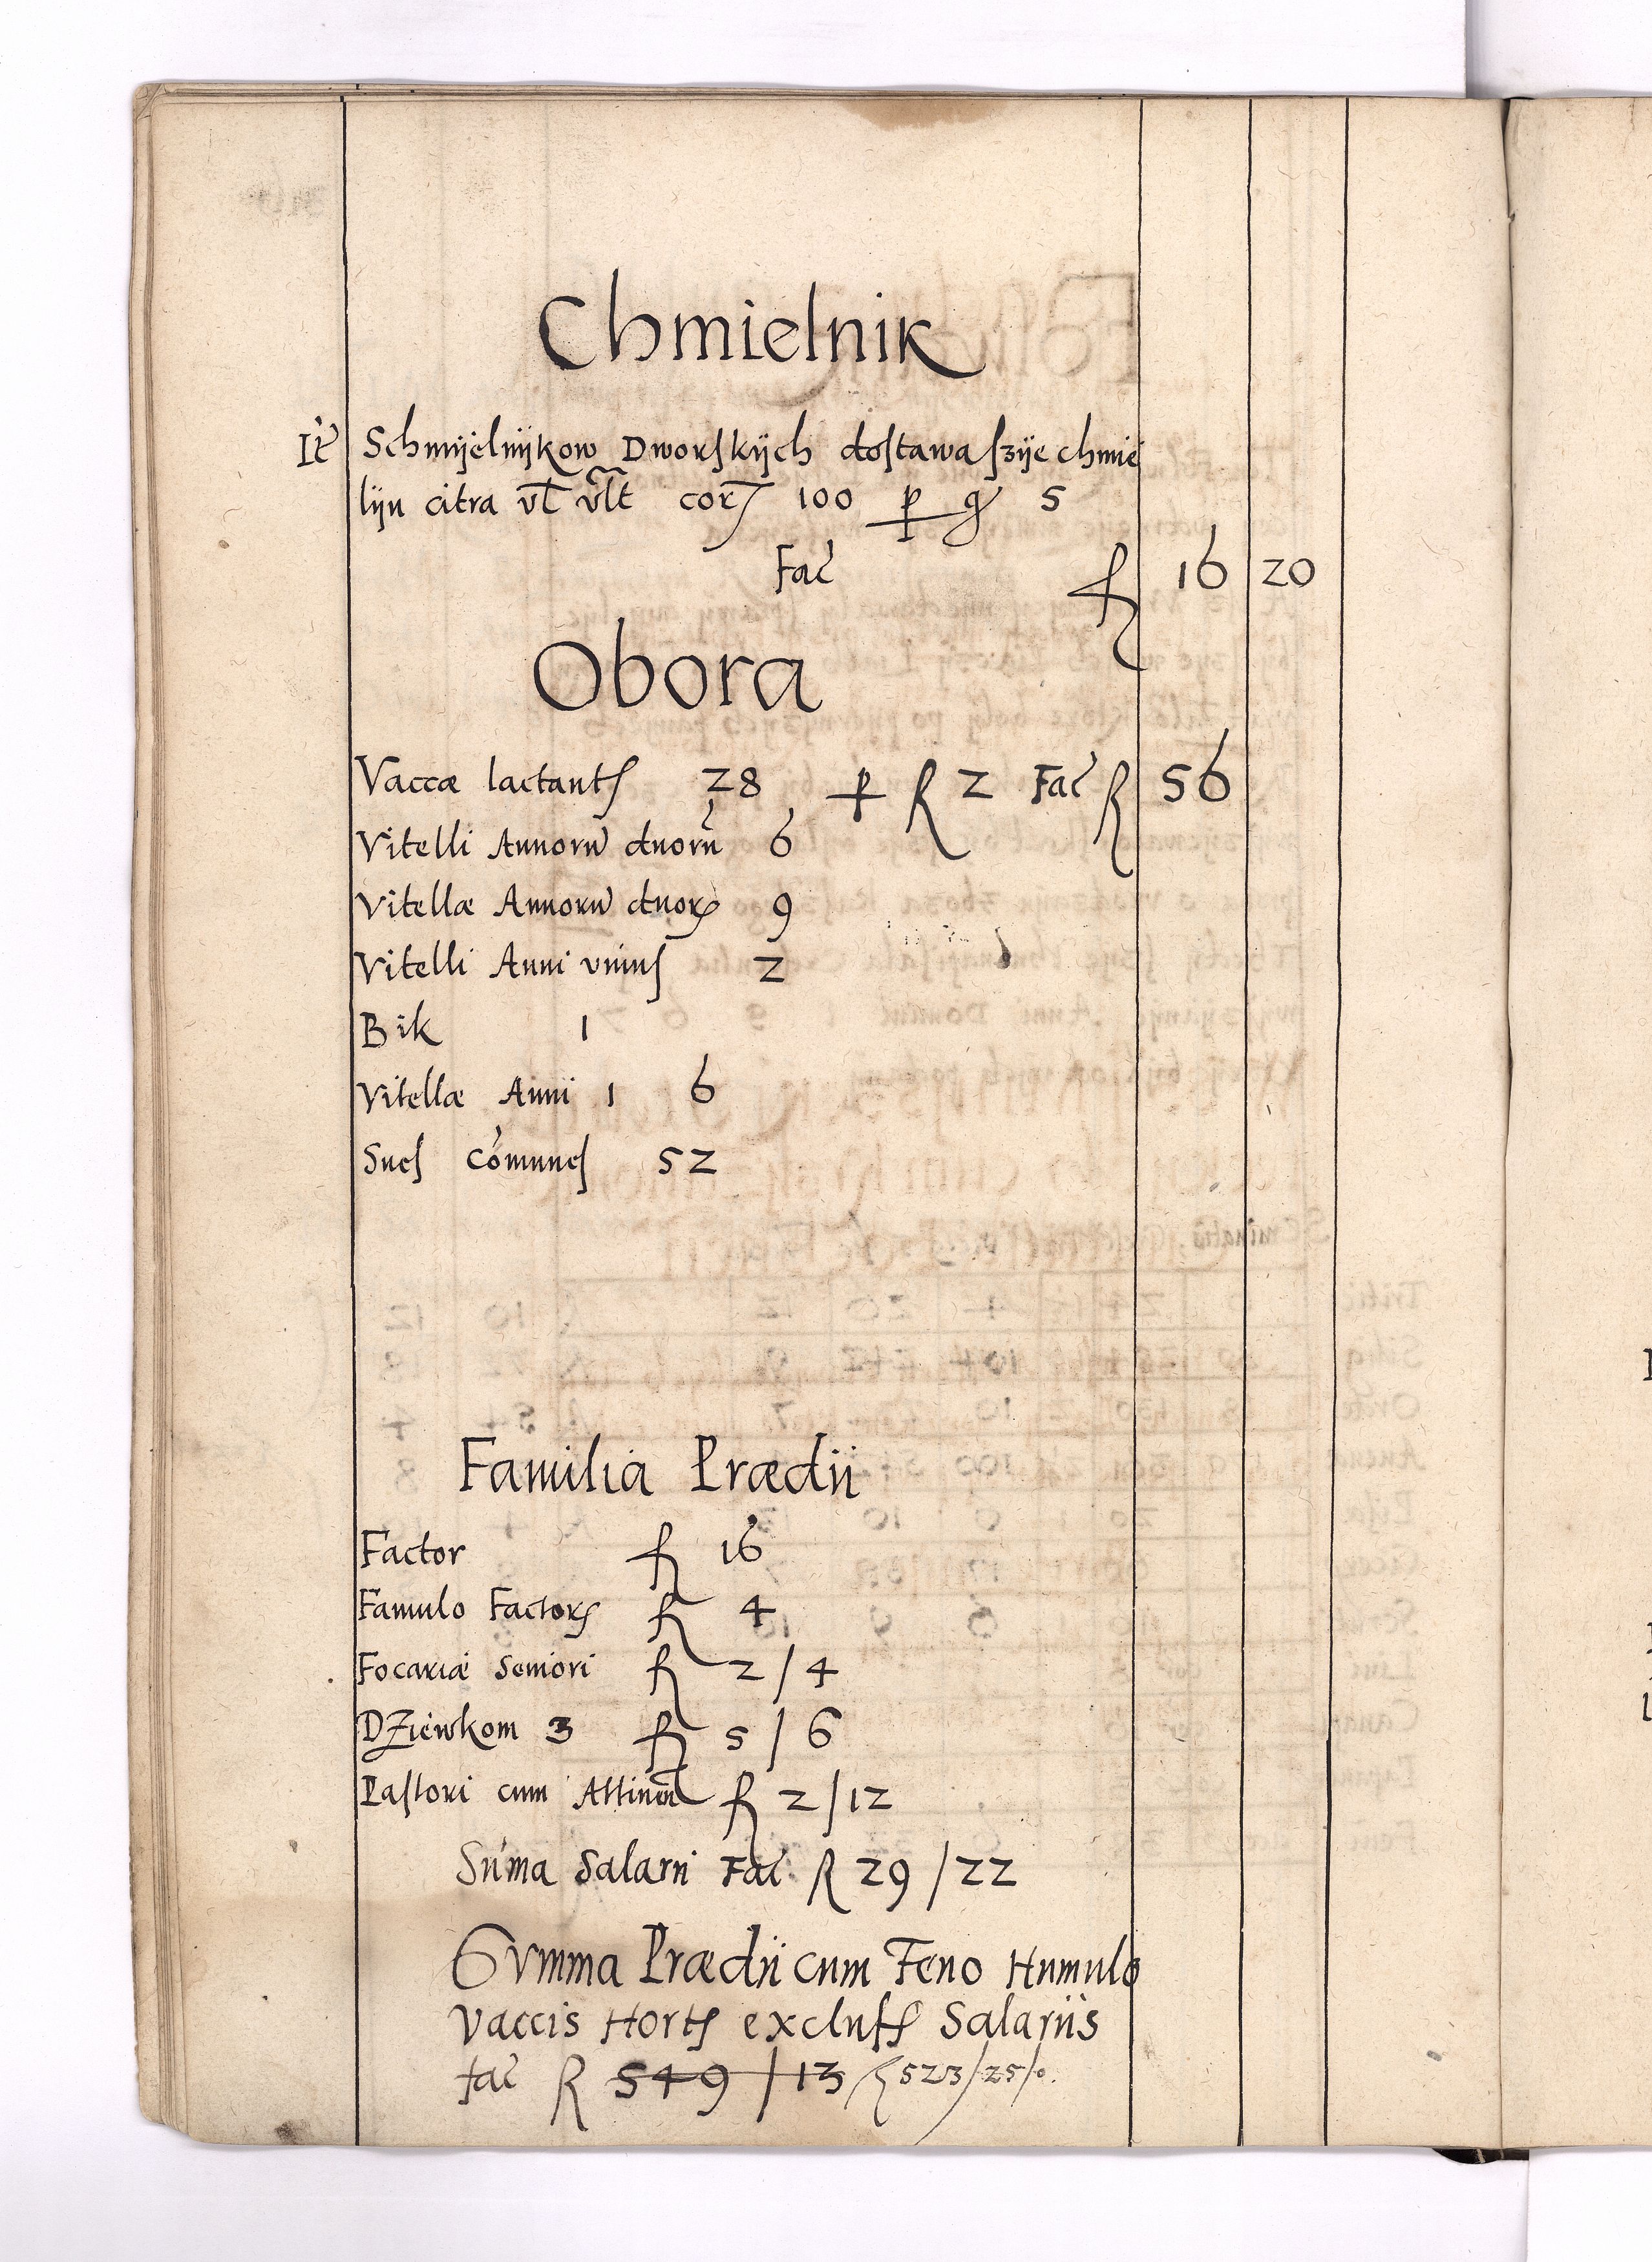 Chmielnik
It Schmÿelnÿkow Dworskÿch dostawa szÿe chmie
lÿu citra vl vlt cor 100 p g 5
Fac f 16 20
Obora
Vaccæ lactants 28 p f 2 Fac f 56
Vitelli Annoru duoru 6
Vitellæ Annoru duor 9
Vitelli Anni vnius 2
Bik 1
Vitellæ Anni 1 6
Sues Comunes 52
Familia Prædii
Factor f 16
Famulo Factoris f 4
Focariæ Seniori f 2 / 4
DZiewkom 3 f 5 / 6
Pastori cum Attinen f 2 / 12
Suma Salarii Fac f 29 / 22
Summa Prædii cum Feno Humulo
Vaccis Hortis exclusis Salariis
fac f 549 / 13 f 523 / 25 / 0.